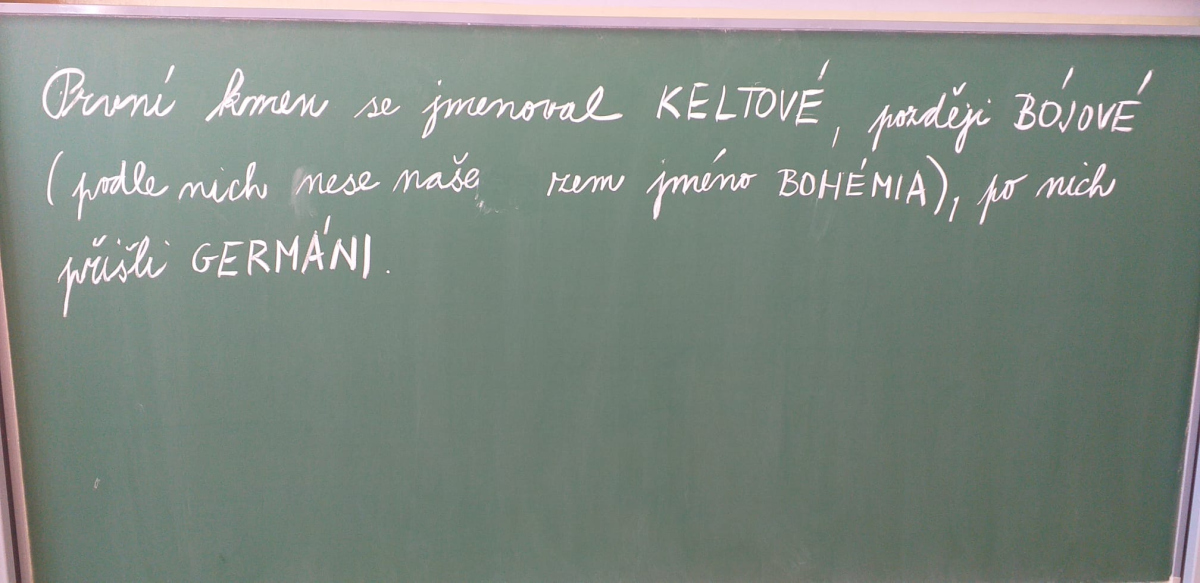 První kmen se jmenoval KELTOVÉ, později BÓJOVÉ
(podle nich nese naše zem jméno BOHÉMIA), po nich
přišli GERMÁNI.